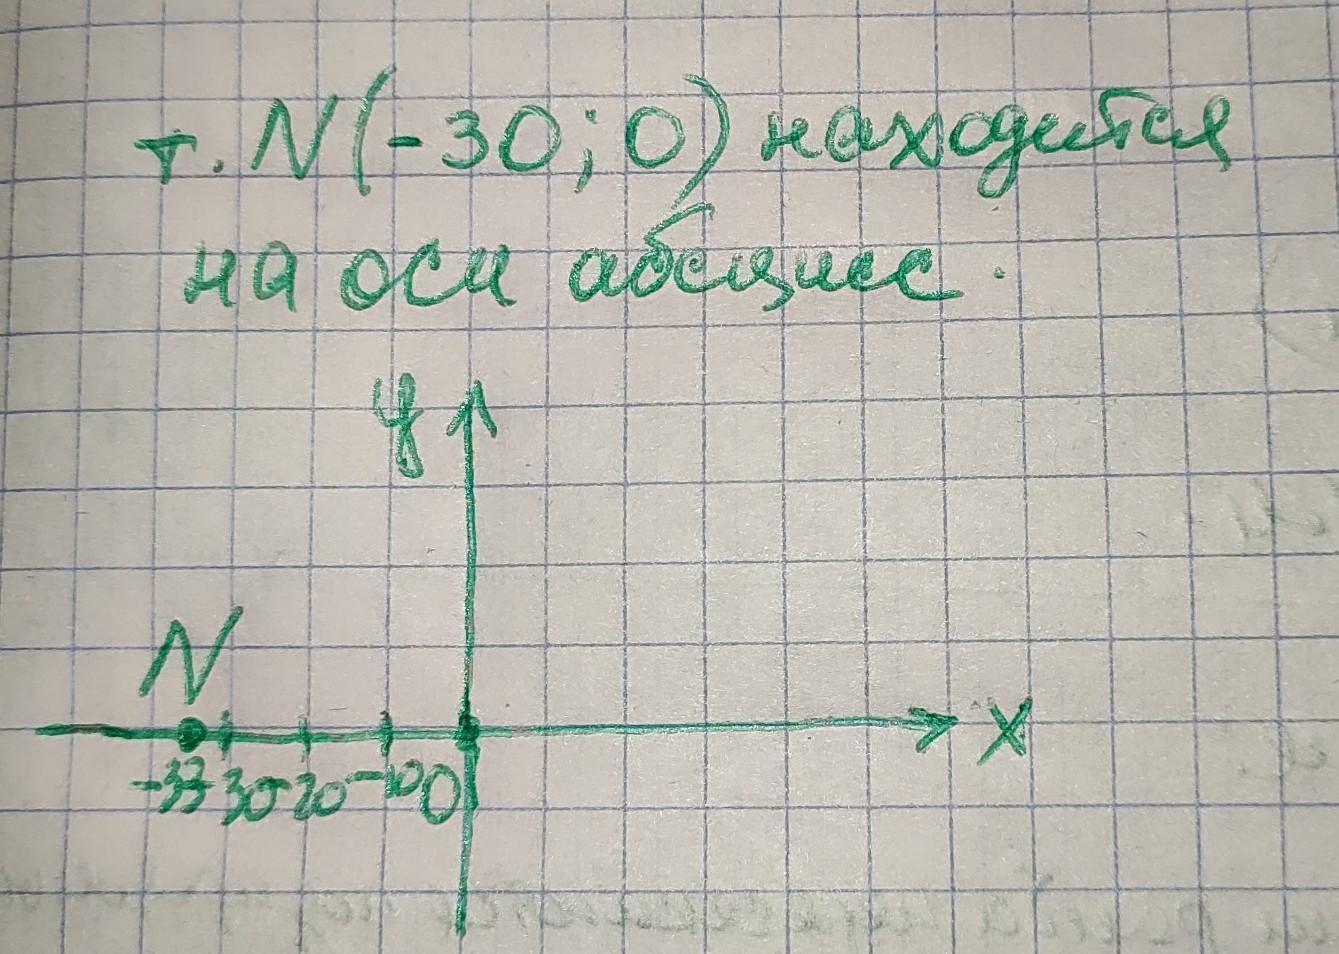 т. N(-30; 0) находится
на оси абсцисс.
y
N
x
-33 -30 -20 -10 0